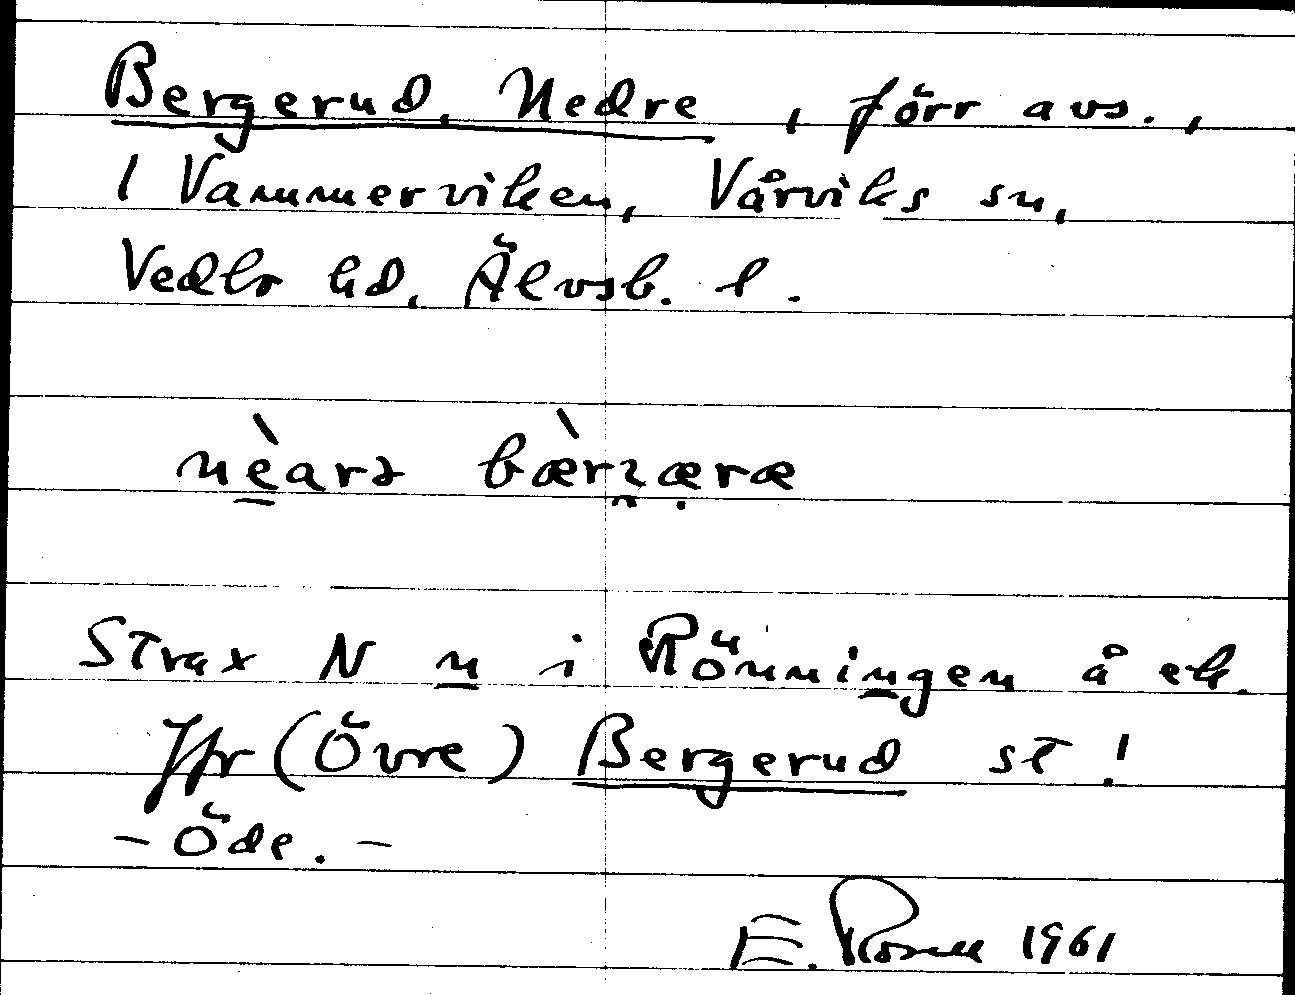 Bergerud, Nedre, förr avs.,
1 Vammerviken, Vårviks sn,
Vedbo hd, Älvsb. l.
nèarə bæ̀rʒæræ
Strax N n i Rönningen å ek.
Jfr (Övre) Bergerud st!
- Öde. -
E. Rosell 1961